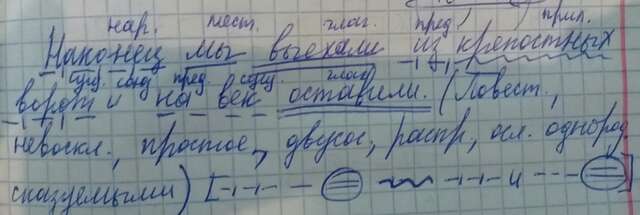 нар. мест. глаг. пред. прил.
Наконец мы выехали из крепостных
сущ. союз пред. сущ. глаг.
ворот и на век оставили. (Повест.,
невоскл., простое, двусос, распр, осл. однород
сказуемыми) [ и ]